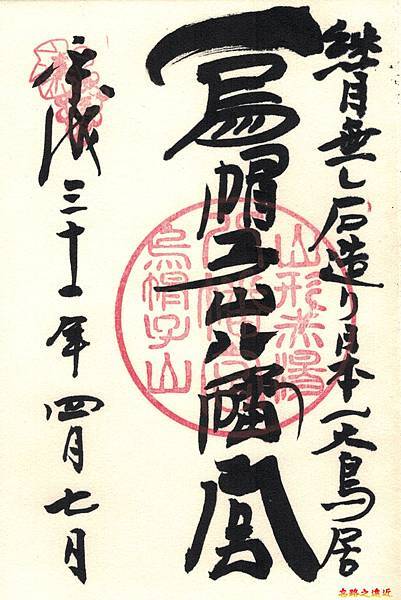 継目無し石造り日本一大鳥居
烏帽子山八幡宮
平成三十一年四月七日
山形赤湯
烏帽子山
忘路之遠近